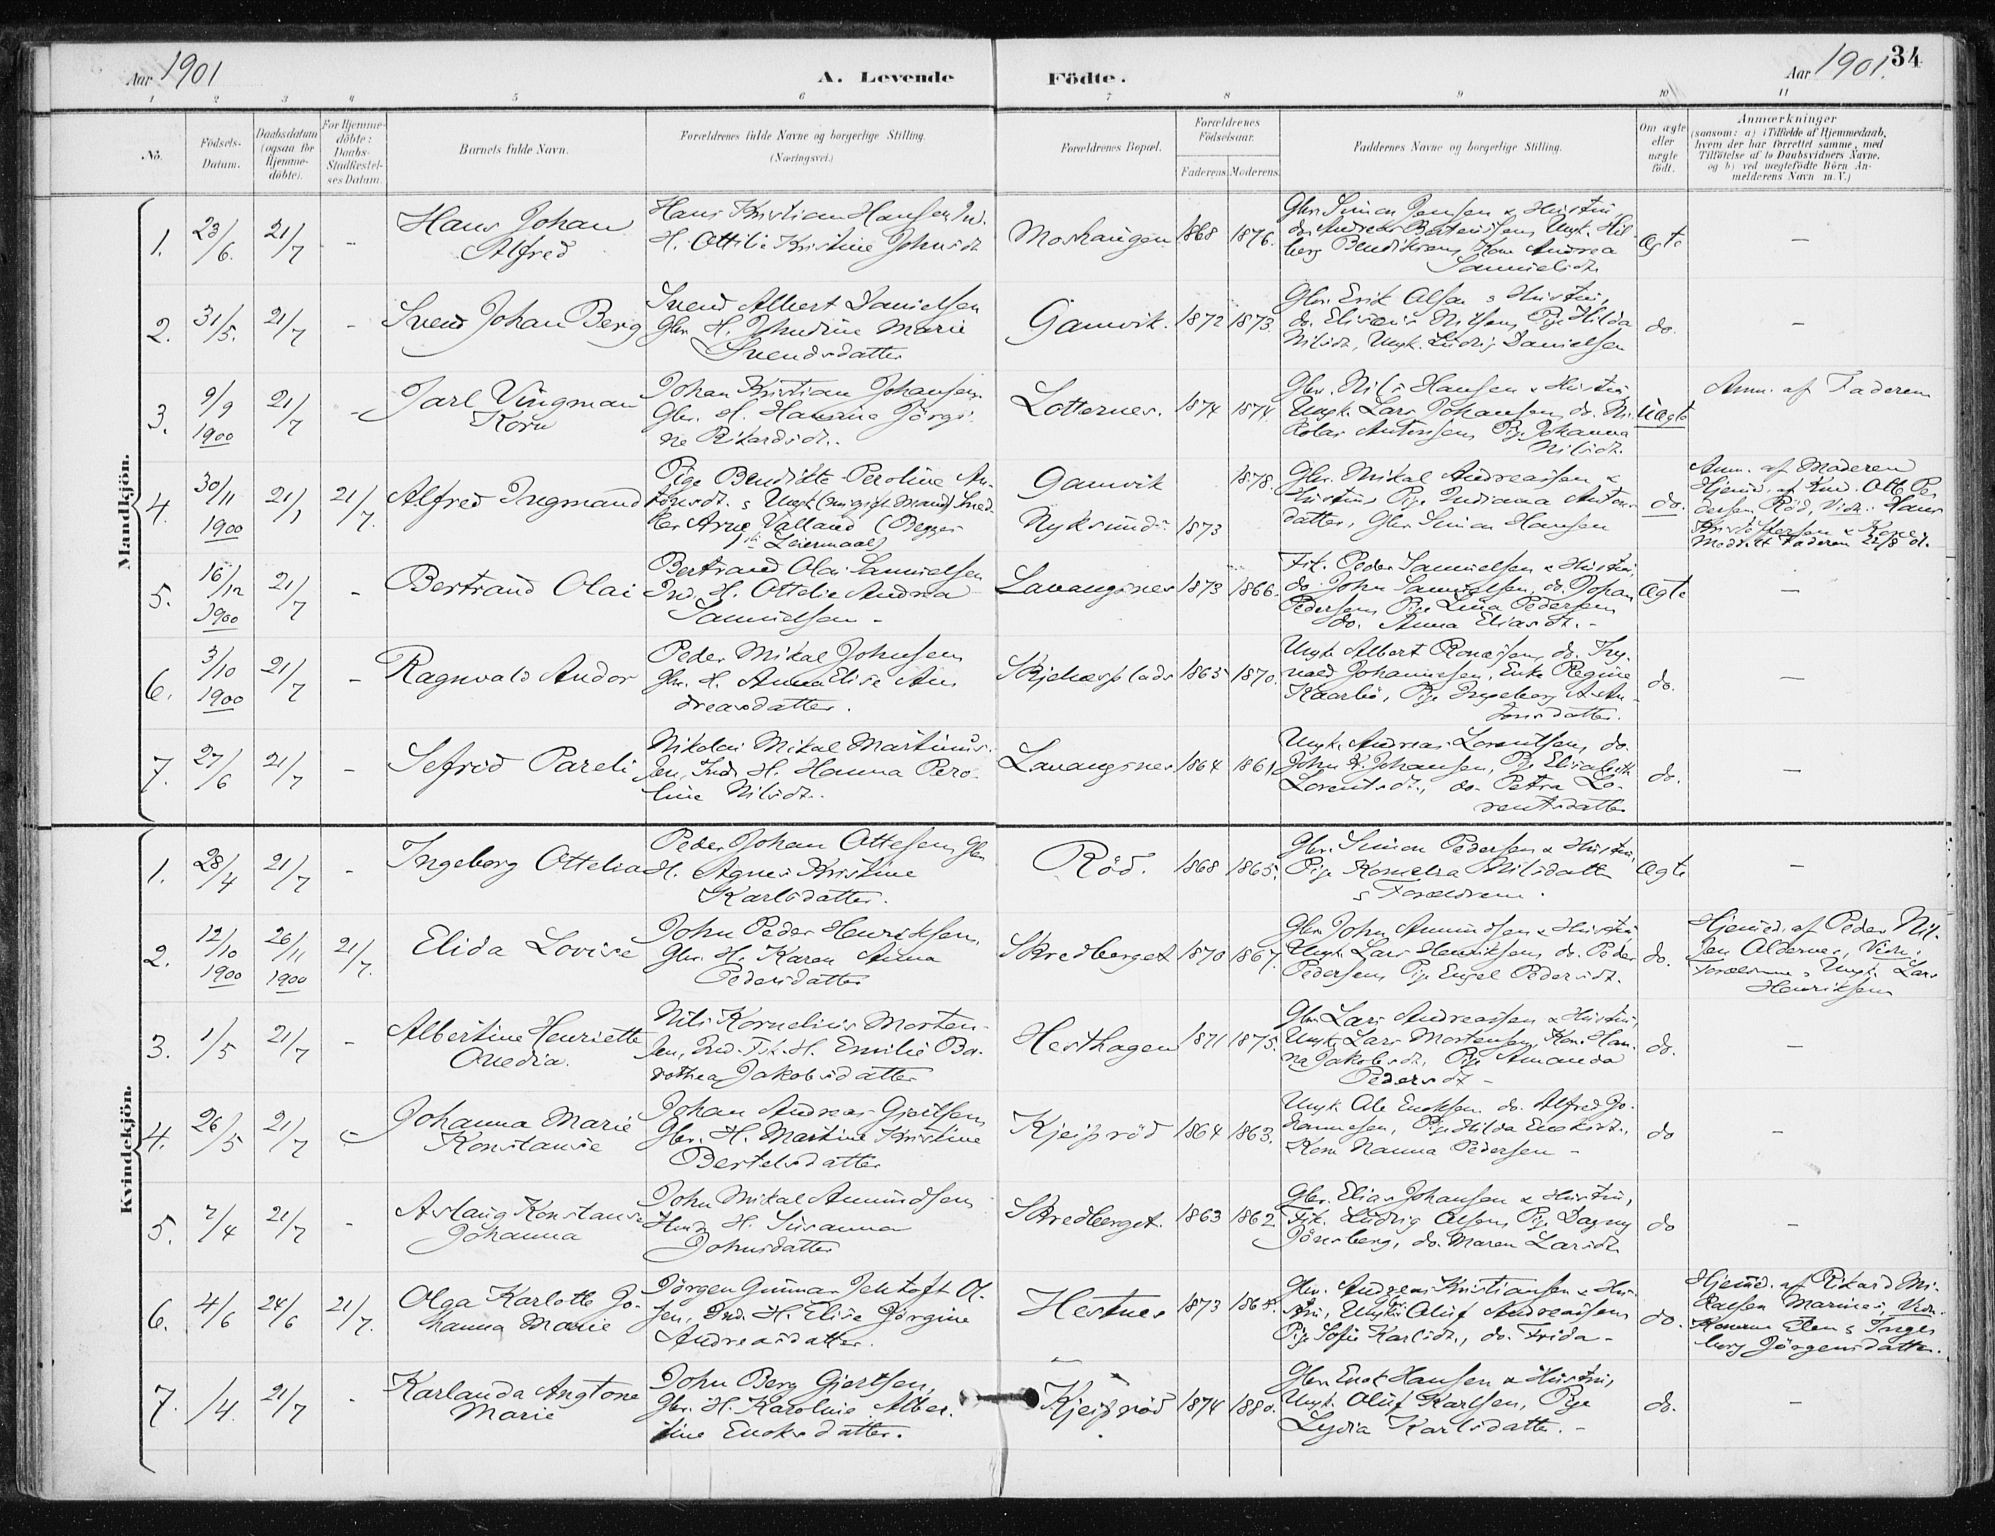 Aar 1901
A. Levende Födte.
Aar 1901.
34
1 2 3 4 5 6 7 8 9 10 11
No.
Födsels-Datum.
Daabsdatum (ogsaa for Hjemme-döbte).
For Hjemme-döbte: Daabs-Stadfæstel-ses Datum.
Barnets fulde Navn.
Forældrenes fulde Navne og borgerlige Stilling.
(Næringsvei.)
Forældrenes Bopæl.
Forældrenes Födselsaar.
Faderens. Moderens.
Faddernes Navne og borgerlige Stilling.
Om ægte eller uægte födt.
Anmærkninger
(saasom: a) i Tilfælde af Hjemmedaab,
hvem der har forrettet samme, med
Tilföielse af to Daabsvidners Navne,
og b) ved uægtefödte Börn An-
melderens Navn m. V.)
Mandkjön.
1. 23/6. 21/7 - Hans Johan Alfred
Hans Kristian Hansen Ind.
H. Ottilie Kristine Johnsdt.
Moshaugen 1868 1876.
Gbr. Simon Jensen & Hustru,
do. Andreas Berteussen, Ungk. Hil-
berg Bendiksen, Kone Andrea
Samuelsdt.
ægte -
2. 31/5. 21/7 - Svend Johan Berg
Svend Albert Danielsen
Gbr. H. Jhndine Marie
Svendsdatter
Gamvik. 1872 1873.
Gbr. Erik Olsen & Hustru,
do. Elisæus Nilsen, Pige Hilda
Nilsdt., Ungk. Ludvig Danielsen
do. -
3. 9/9 1900 21/7 - Jarl Vingman Korn
Johan Kristian Johansen
Gbr. H. Hansine Jörgi-
ne Rikardsdt.
Lotternes. 1874 1874.
Gbr. Nils Hansen & Hustru,
Ungk. Lars Johansen, do. Ni-
kolai Antonsen, Pige Johanna
Nilsdt.
uægte
Anm. af Faderen
4. 30/11 1900 21/1 21/7. Alfred Ingmand
Pige Bendikte Peroline An-
tonsdt. & Ungk. (nu gift Mand) Sned-
ker Arne Valland (Begges
1ste Leiermaal)
Gamvik 1878.
Nyksund 1873
Gbr. Mikal Andreassen &
Hustru, Pige Indiana Antons-
datter, Gbr. Simon Hansen
do.
Anm. af Moderen
Hjemd. af Kmd. Otto Pe-
dersen Röd, Vidn: Hans
Kristoffersen & Kone.
5. 16/12 1900 21/7 - Bertrand Olai
Bertrand Olai Samuelsen
Ind. H. Ottelie Andrea
Samuelsen -
Lavangsnes 1873 1866.
Fisk. Peder Samuelsen & Hustru,
do. John Samuelsen, do. Johan
Pedersen, Pige Lina Pedersen
do. Anna Eliasdt. -
ægte -
6. 3/10 1900 21/7 - Ragnvald Andor
Peder Mikal Johnsen
Gbr. H. Anna Elise An-
dreasdatter.
Skjelesplads 1865 1870.
Ungk. Albert Ronæssen, do. Ing-
vald Johannesen, Enke Regine
Kaarbö, Pige Ingeborg A. An-
tonsdatter.
do. -
7. 27/6 21/7 - Sefrid Pareli
Nikolai Mikal Martinus-
sen, Ind. H. Hanna Pero-
line Nilsdt.
Lavangsnes 1864 1861.
Ungk. Andreas Lorentsen, do.
John K. Johansen, Pige Elisabeth
Lorentsdt., do. Petra Lo-
rentsdatter
do. -
Kvindekjön.
1. 28/4 21/7 - Ingeborg Ottelia
Peder Johan Ottesen Gbr.
H. Agnes Kristine
Karlsdatter.
Röd. 1868 1865.
Gbr. Simon Pedersen & Hustru,
Pige Kornelia Nilsdatter
& Forældrene.
ægte -
2. 12/10 1900 26/11 1900 21/7. Elida Lovise
John Peder Henriksen,
Gbr. H. Karen Anna
Pedersdatter
Skredberget 1870 1867.
Gbr. John Amundsen & Hustru,
Ungk. Lars Henriksen, do. Peder
Pedersen, Pige Engel Pedersdt.
do.
Hjemd. af Peder Nil-
sen Aldernes, Vidn:
Forældrene & Ungk. Lars
Henriksen
3. 1/5 21/7 - Albertine Henriette Ovedia.
Nils Kornelius Morten-
sen, Ind. Fisk. H. Emilie Do-
rothea Jakobsdatter
Hesthagen 1871 1875.
Gbr. Lars Andreassen & Hustru,
Ungk. Lars Mortensen, Kone Han-
na Jakobsdt., Pige Amanda
Pedersdt -
do. -
4. 26/5 21/7 - Johanna Marie Konstanse
Johan Andreas Gjertsen
Gbr. H. Martine Kristine
Bertelsdatter
Kjeipröd 1864 1863.
Ungk. Ole Enoksen, do. Alfred Jo-
hannesen, Pige Hilda Enoksdt.,
Kone Nanna Pedersen -
do -
5. 2/4 21/7 - Aslaug Konstanse Johanna
John Mikal Amundsen
H. Susanna
Johnsdatter
Skredberget. 1863 1862
Gbr. Elias Johansen & Hustru,
Fisk. Ludvig Olsen, Pige Dagny
Jönsberg, do. Maren Larsdt.
do -
6. 4/6 24/6 21/7. Olga Karlotte Jo-hanna Marie
Jörgen Gunnar Jektoft Ol-
sen, Ind. H. Elise Jörgine
Andreasdatter.
Hestnes 1873 1864.
Gbr. Andreas Kristiansen & Hu-
stru, Ungk. Oluf Andreassen
Pige Sofie Karlsdt., do. Frida -
do.
Hjemd. af Rikard Mi-
kalsen Marines, Vidn.
Konerne Elen & Inge-
borg Jörgensdatter.
7. /4. 21/7 - Karlanda Angtone Marie
John Berg Gjertsen,
Gbr. H. Karoluis Alber-
tine Enoksdatter.
Kjeipröd 1874 1880.
Gbr. Enok Hansen & Hustru,
Ungk. Oluf Karlsen, Pige
Lydia Karlsdatter. -
do. -